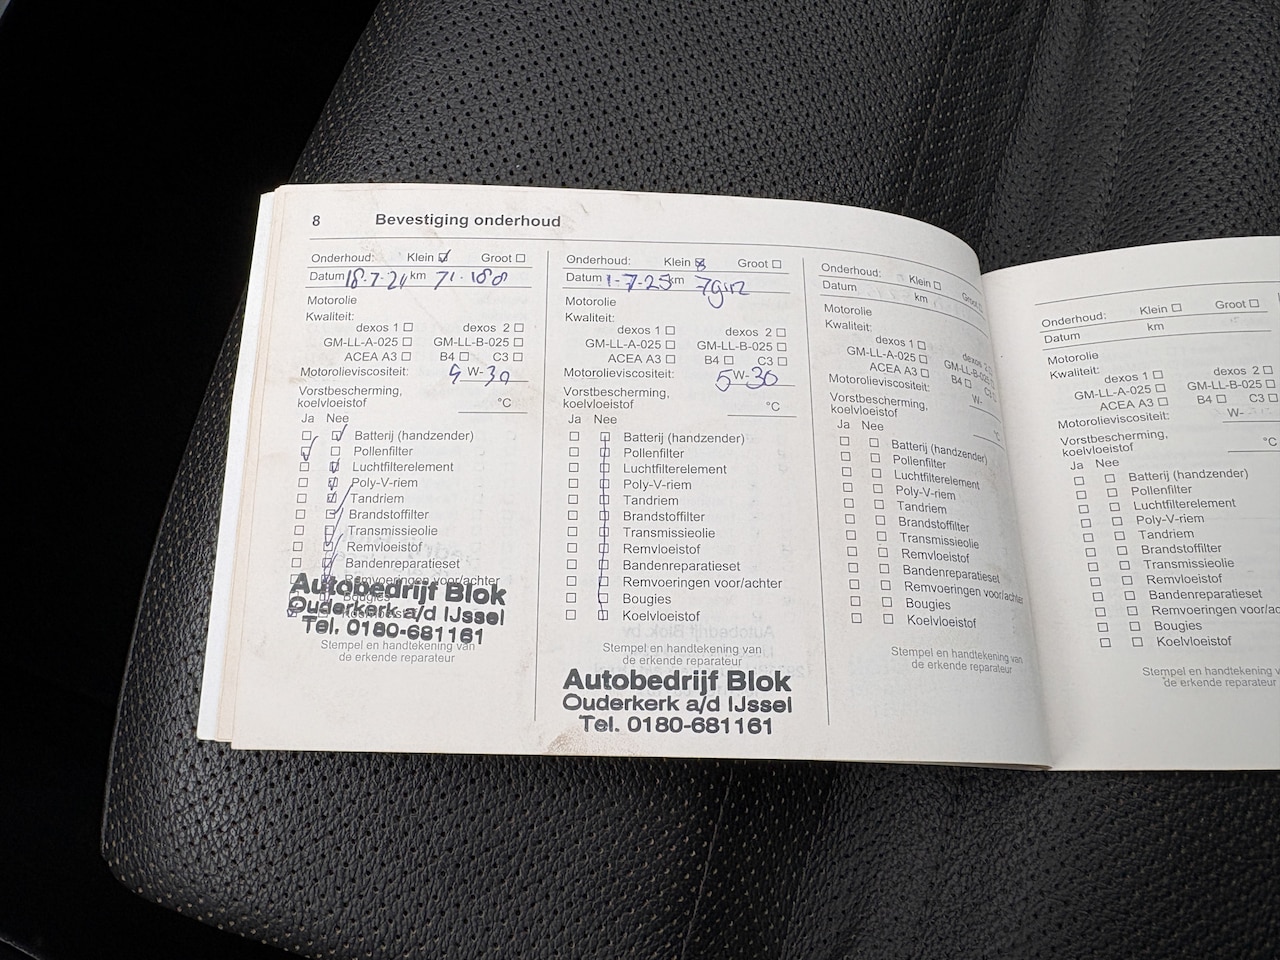 8 Bevestiging onderhoud
Onderhoud: Klein Groot
Datum 18-7-24 km 71.188
Motorolie
Kwaliteit:
dexos 1 dexos 2
GM-LL-A-025 GM-LL-B-025
ACEA A3 B4 C3
Motorolieviscositeit: 5 W-30
Vorstbescherming,
koelvloeistof °C
Ja Nee
Batterij (handzender)
Pollenfilter
Luchtfilterelement
Poly-V-riem
Tandriem
Brandstoffilter
Transmissieolie
Remvloeistof
Bandenreparatieset
Remvoeringen voor/achter
Bougies
Autobedrijf Blok
Ouderkerk a/d IJssel
Tel. 0180-681161
Stempel en handtekening van
de erkende reparateur
Onderhoud: Klein Groot
Datum 1-7-25 km
Motorolie
Kwaliteit:
dexos 1 dexos 2
GM-LL-A-025 GM-LL-B-025
ACEA A3 B4 C3
Motorolieviscositeit: 5W-30
Vorstbescherming,
koelvloeistof °C
Ja Nee
Batterij (handzender)
Pollenfilter
Luchtfilterelement
Poly-V-riem
Tandriem
Brandstoffilter
Transmissieolie
Remvloeistof
Bandenreparatieset
Remvoeringen voor/achter
Bougies
Koelvloeistof
Stempel en handtekening van
de erkende reparateur
Autobedrijf Blok
Ouderkerk a/d IJssel
Tel. 0180-681161
Onderhoud: Klein
Datum km
Motorolie
Kwaliteit:
dexos 1 dexos 2
GM-LL-A-025 GM-LL-B-025
ACEA A3 B4
Motorolieviscositeit: W-
Vorstbescherming,
koelvloeistof °C
Ja Nee
Batterij (handzender)
Pollenfilter
Luchtfilterelement
Poly-V-riem
Tandriem
Brandstoffilter
Transmissieolie
Remvloeistof
Bandenreparatieset
Remvoeringen voor/achter
Bougies
Koelvloeistof
Stempel en handtekening van
de erkende reparateur
Onderhoud: Klein Groot
Datum km
Motorolie
Kwaliteit:
dexos 1 dexos 2
GM-LL-A-025 GM-LL-B-025
ACEA A3 B4 C3
Motorolieviscositeit: W-
Vorstbescherming,
koelvloeistof °C
Ja Nee
Batterij (handzender)
Pollenfilter
Luchtfilterelement
Poly-V-riem
Tandriem
Brandstoffilter
Transmissieolie
Remvloeistof
Bandenreparatieset
Remvoeringen voor/ac
Bougies
Koelvloeistof
Stempel en handtekening v
de erkende reparateur